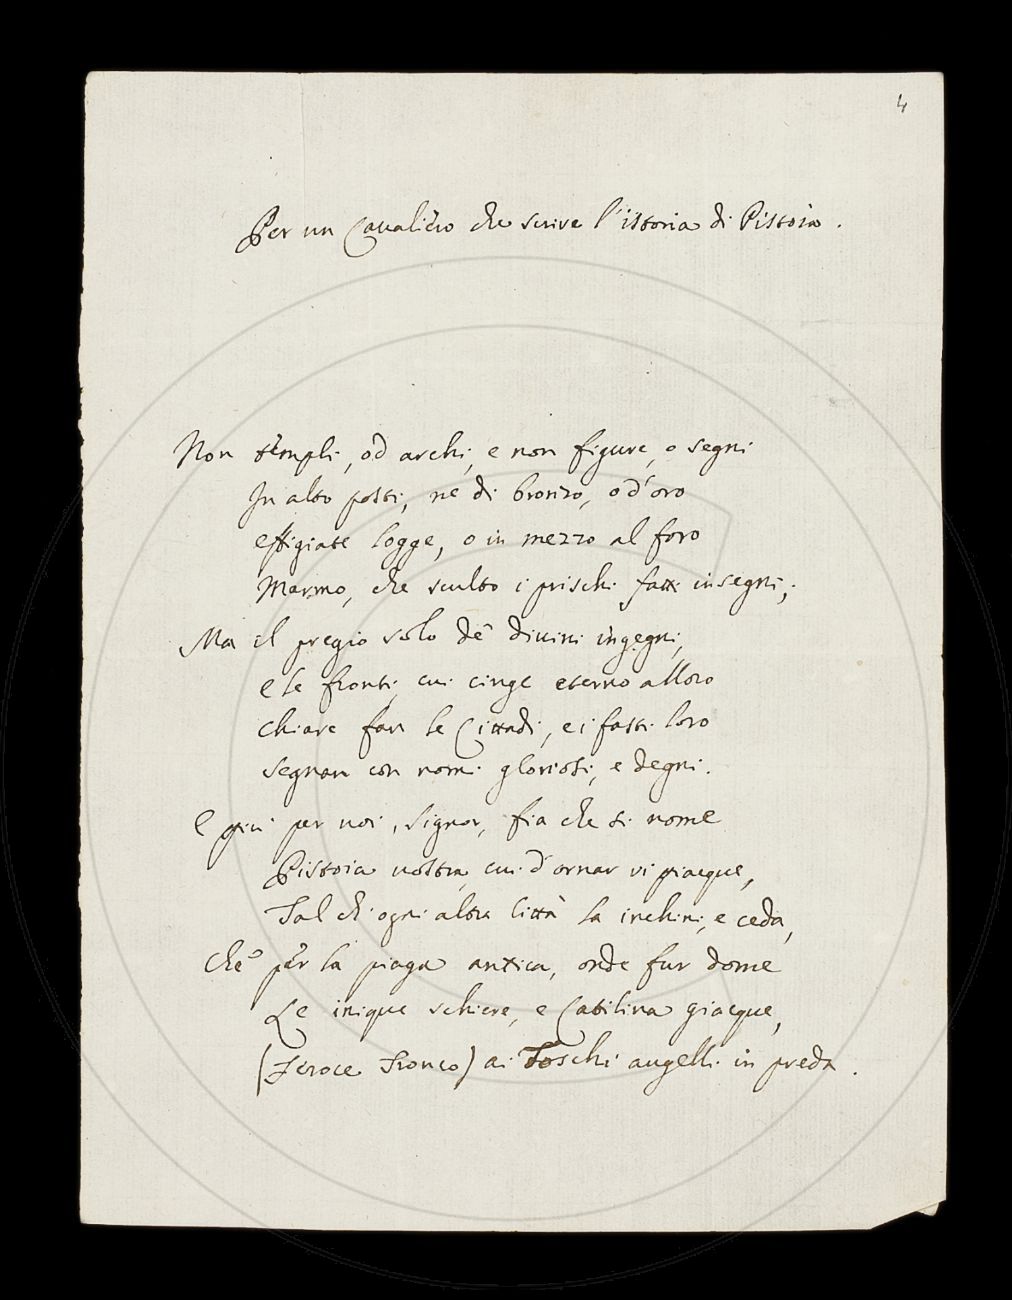 4
Per un Cavaliero che scrive l'istoria di Pistoia.
Non templi, od archi, e non figure, o segni
In alto posti, ne di bronzo, o d'oro
effigiate logge, o in mezzo al foro
Marmo, che sculto i prischi fatti insegni;
Ma il pregio solo de' divini ingegni,
e le fronti, cui cinge eterno alloro
Chiare fan le Cittadi, e i fasti loro
segnan con nomi gloriosi, e degni.
E più per voi, Signor, fia che si nome
Pistoia vostra, cui d'ornar vi piacque,
Tal ch'ogni altra Città la inchini, e ceda,
Che per la piaga antica, onde fur dome
Le inique schiere, e Catilina giacque,
(Feroce Tronco) ai Toschi augelli in preda.